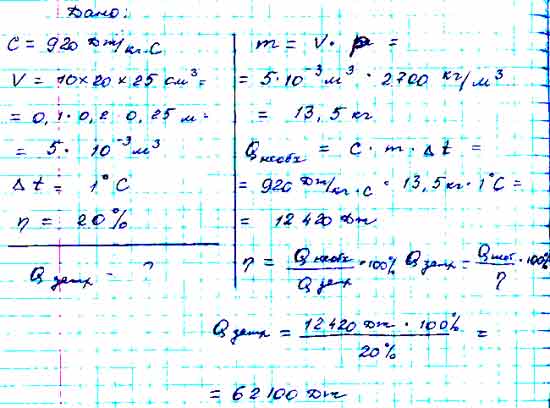 Дано:
C = 920 Дж/кг·С
V = 10×20×25 см³ =
= 0,1·0,2 0,25 м =
= 5· 10⁻³ м³
Δt = 1°C
η = 20%
Qзатр – ?
m = V· ρ =
= 5·10⁻³ м³ · 2700 кг/м³
= 13,5 кг
Qнеобх = C · m · Δt =
= 920 Дж/кг·С · 13,5 кг · 1°С =
= 12 420 Дж
η = Qнеобх/Qзатр ·100% Qзатр = Qнеоб·100%/η
Qзатр = 12420 Дж · 100%/20% =
= 62 100 Дж